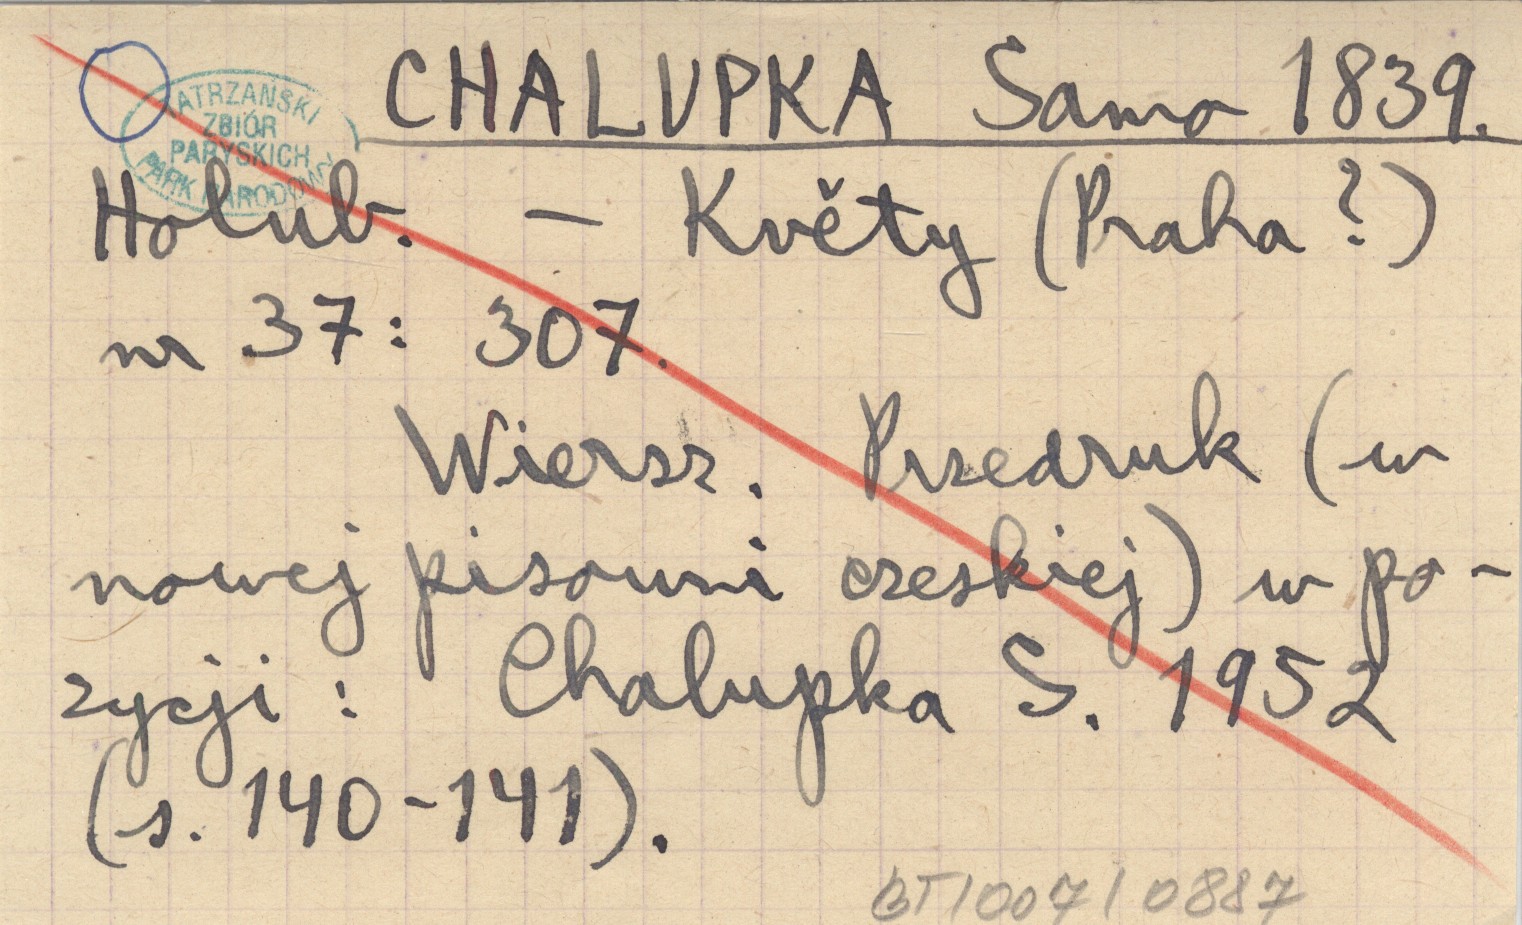 CHALUPKA Samo 1839.
ATRZAŃSKI
ZBIÓR
PARYSKICH
PARK NARODOWY
Holub. — Květy (Praha ?)
nr 37: 307.
Wiersz. Przedruk (w
nowej pisowni czeskiej) w po-
zycji: Chalupka S. 1952
(s. 140-141).
BT/007/0887